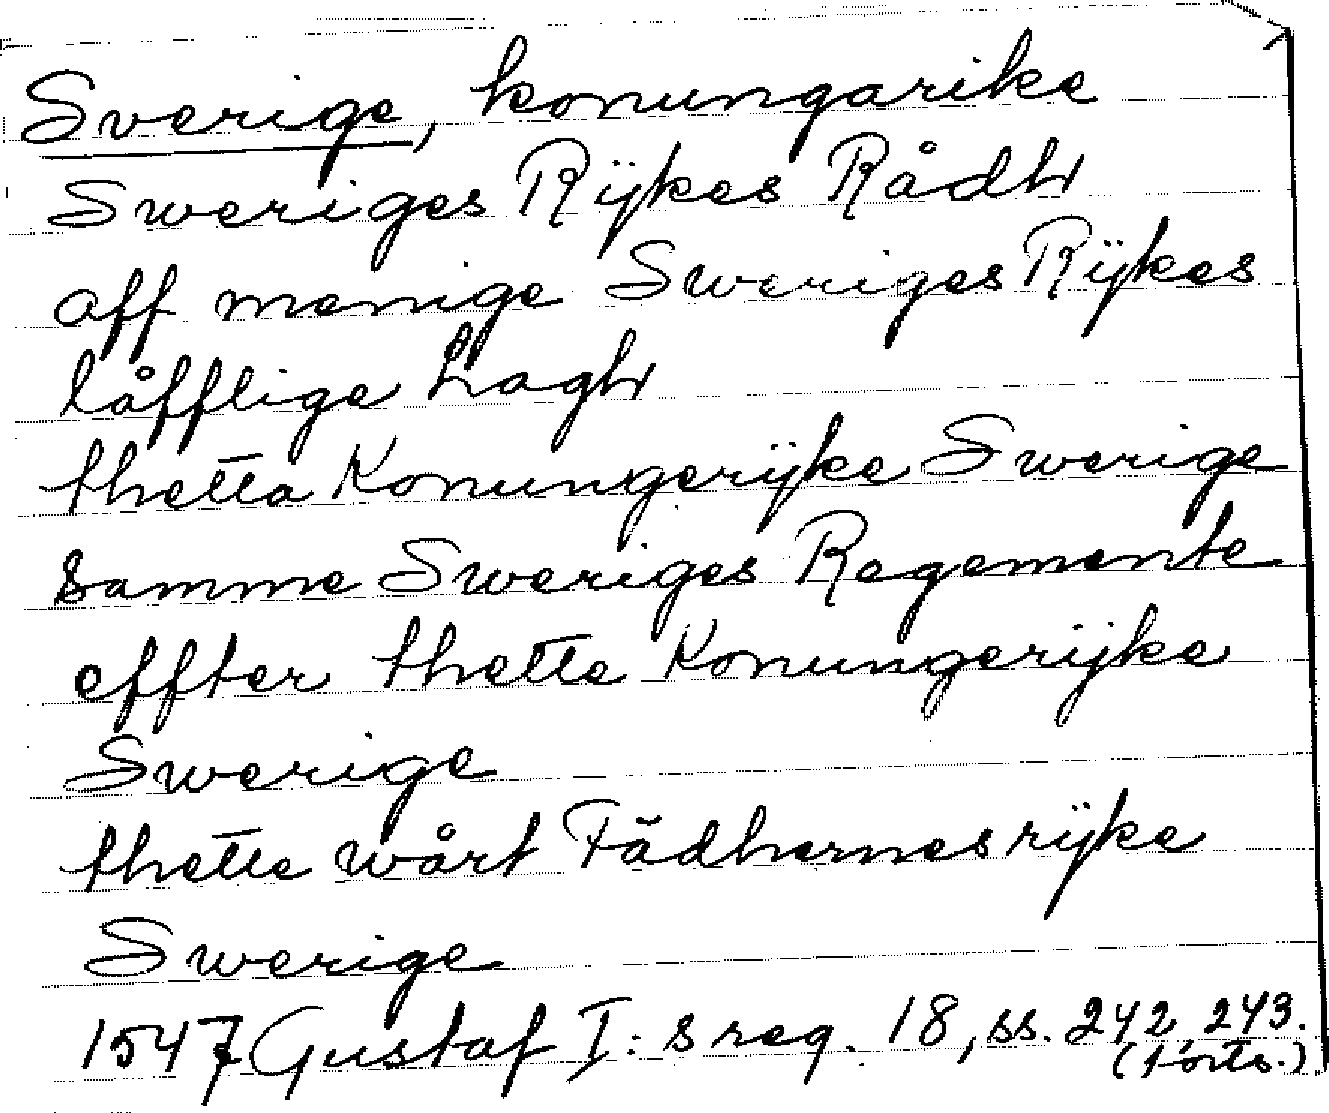 Sverige, konungarike
Sweriges Rÿkes Rådh
aff menige Sweriges Rÿkes
låfflige Lagh
thetta Konungerÿke Swerige
samme Sweriges Regemente
effter thette Konungerijke
Swerige
thette wårt Fädhernesrÿke
Swerige
1547 Gustaf I:s reg. 18, ss. 242, 243.
(forts.)